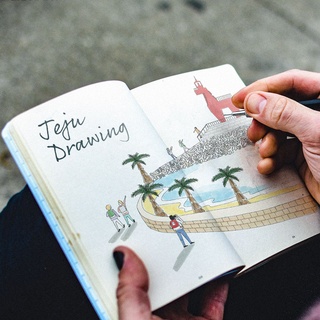 Jeju
Drawing